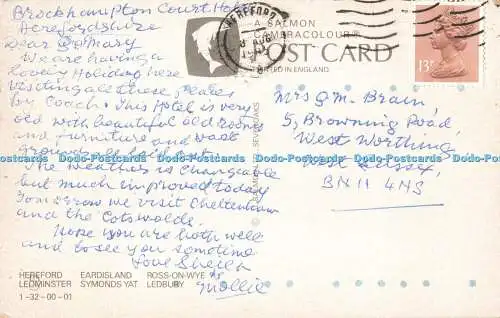 Brockhampton Court Hotel
Herefordshire
Dear G & Mary
We are having a
lovely Holiday here
visiting all these places
by Coach. This Hotel is very
old with beautiful old rooms
and furniture and vast
grounds all
The weather is changeable
but much improved today
Tomorrow we visit Cheltenham
and the Cotswolds.
Hope you are both well
and to see you sometime
Love Sheila
&
Mollie
HEREFORD EARDISLAND ROSS-ON-WYE
LEDMINSTER SYMONDS YAT LEDBURY
1-32-00-01
HEREFORD
AUG
A SALMON
CAMERACOLOUR
POST CARD
PRINTED IN ENGLAND
13P
Mrs G.M. Brain,
5, Browning Road,
West Worthing
West Sussex,
BN11 4NS
Dodo-Postcards Dodo-Postcards Dodo-Postcards Dodo-Postcards Dodo-Postcards Dodo-Postcards